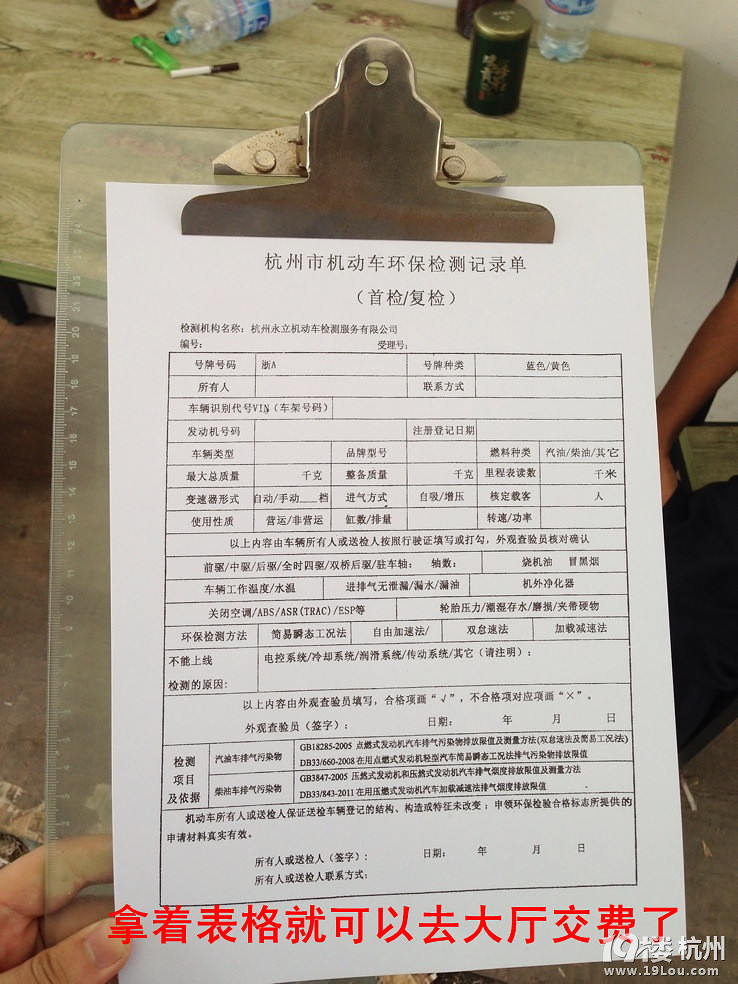 杭州市机动车环保检测记录单
（首检/复检）
检测机构名称：杭州永立机动车检测服务有限公司
编号： 受理号：
号牌号码 浙A 号牌种类 蓝色/黄色
所有人 联系方式
车辆识别代号VIN（车架号码）
发动机号码 注册登记日期
车辆类型 品牌型号 燃料种类 汽油/柴油/其它
最大总质量 千克 整备质量 千克 里程表读数 千米
变速器形式 自动/手动___档 进气方式 自吸/增压 核定载客 人
使用性质 营运/非营运 缸数/排量 转速/功率
以上内容由车辆所有人或送检人按照行驶证填写或打勾，外观查验员核对确认
前驱/中驱/后驱/全时四驱/双桥后驱/驻车轴： 轴数： 烧机油 冒黑烟
车辆工作温度/水温 进排气无泄漏/漏水/漏油 机外净化器
关闭空调/ABS/ASR(TRAC)/ESP等 轮胎压力/潮湿存水/磨损/夹带硬物
环保检测方法 简易瞬态工况法 自由加速法/ 双怠速法 加载减速法
不能上线 电控系统/冷却系统/润滑系统/传动系统/其它（请注明）：
检测的原因：
以上内容由外观查验员填写，合格项画“√”，不合格项对应项画“×”。
外观查验员（签字）： 日期： 年 月 日
检测
项目
及依据
汽油车排气污染物
GB18285-2005 点燃式发动机汽车排气污染物排放限值及测量方法(双怠速法及简易工况法)
DB33/660-2008在用点燃式发动机轻型汽车简易瞬态工况法排气污染物排放限值
柴油车排气污染物
GB3847-2005 压燃式发动机和压燃式发动机汽车排气烟度排放限值及测量方法
DB33/843-2011在用压燃式发动机汽车加载减速法排气烟度排放限值
机动车所有人或送检人保证送检车辆登记的结构、构造或特征未改变；申领环保检验合格标志所提供的
申请材料真实有效。
所有人或送检人（签字）： 日期： 年 月 日
所有人或送检人联系方式：
拿着表格就可以去大厅交费了
19楼杭州
www.19Lou.com